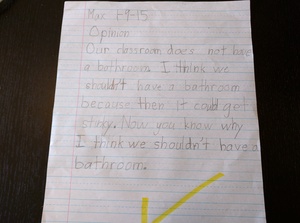 Max 1-9-15
Opinion
Our classroom does not have
a bathroom. I think we
shouldn't have a bathroom
because then it could get
stinky. Now you know why
I think we shouldn't have a
bathroom.